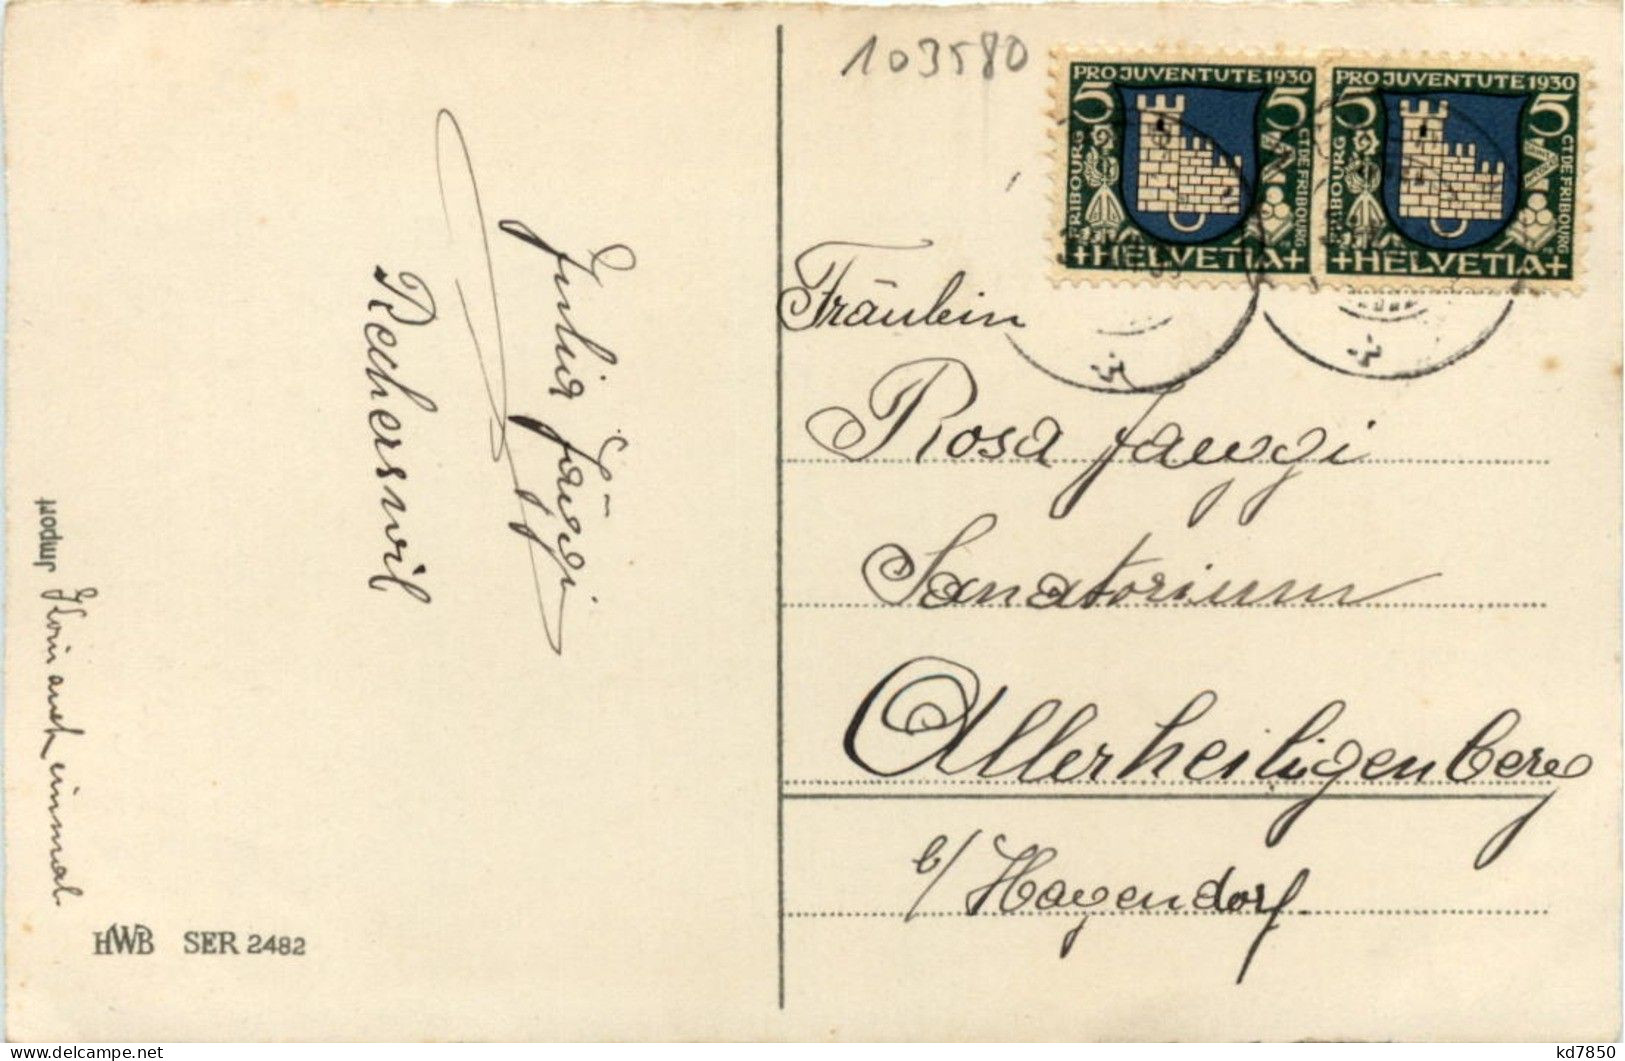 103580
PRO JUVENTUTE 1930
5 5
FRIBOURG
CT. DE FRIBOURG
+HELVETIA+
PRO JUVENTUTE 1930
5 5
FRIBOURG
CT. DE FRIBOURG
+HELVETIA+
Fräulein
Rosa Jaeggi
Sanatorium
Allerheiligenberg
b/ Hagendorf.
Julia Jäggi
Recherswil
auch einmal.
Import
HWB SER 2482
kd7850